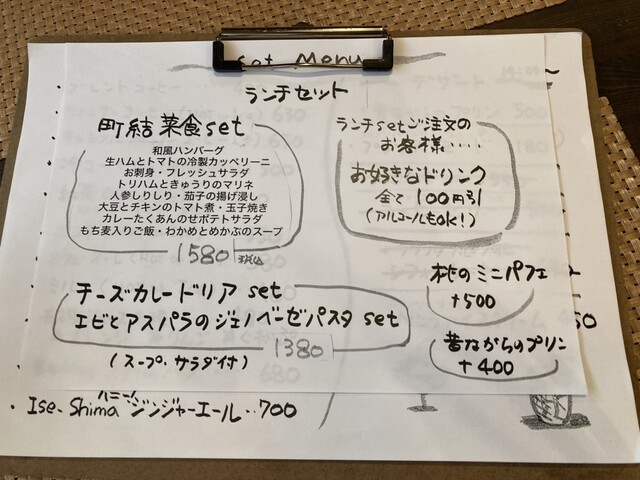 set Menu
ランチセット
町結菜食set
和風ハンバーグ
生ハムとトマトの冷製カッペリーニ
お刺身・フレッシュサラダ
トリハムときゅうりのマリネ
人参しりしり・茄子の揚げ浸し
大豆とチキンのトマト煮・玉子焼き
カレーたくあんのせポテトサラダ
もち麦入りご飯・わかめとめかぶのスープ
1580 税込
ランチsetご注文の
お客様・・・・
お好きなドリンク
全て100円引
(アルコールもOK!)
チーズカレードリア set
エビとアスパラのジェノベーゼパスタ set
1380
(スープ、サラダ付)
桃のミニパフェ
+500
昔ながらのプリン
+400
・Ise-Shima ハニージンジャーエール・・700